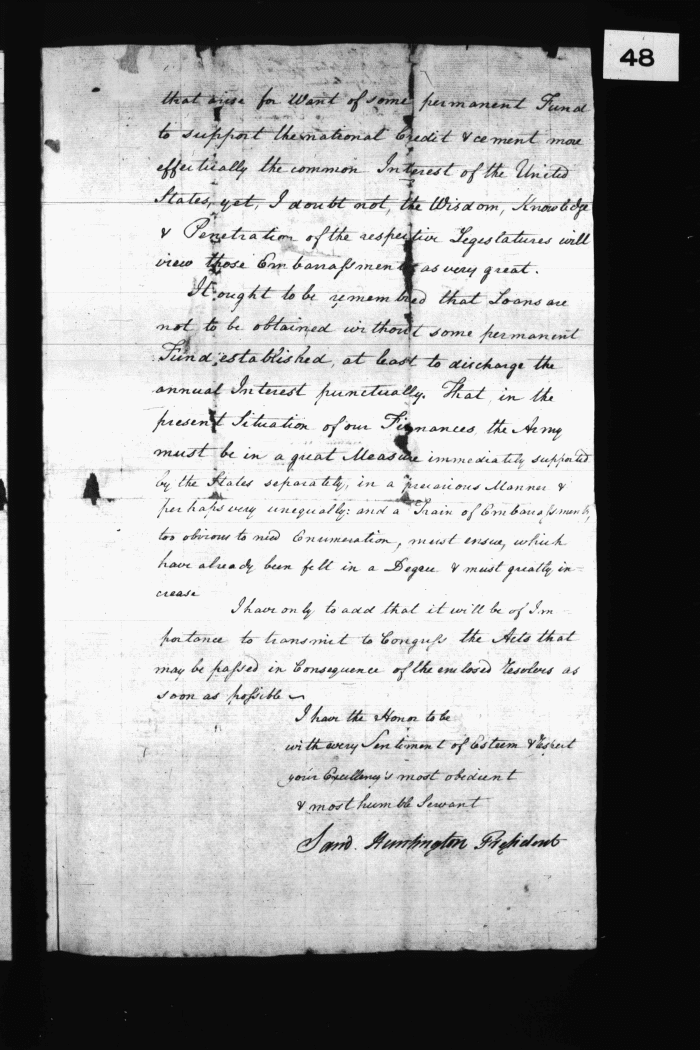 48
that arise for Want of some permanent Fund
to support the national Credit & cement more
effectually the common Interest of the United
States, yet, I doubt not, the Wisdom, Knowledge
& Penetration of the respective Legislatures will
view those Embarrassments as very great.
It ought to be remembred that Loans are
not to be obtained without some permanent
Fund established, at least to discharge the
annual Interest punctually. That in the
present Situation of our Finances the Army
must be in a great Measure immediately supported
by the States separately, in a precarious Manner &
perhaps very unequally: and a Train of Embarrassments,
too obvious to need Enumeration, must ensue, which
have already been felt in a Degree & must greatly in=
crease
I have only to add that it will be of Im=
portance to transmit to Congress the Acts that
may be passed in Consequence of the enclosed Resolves as
soon as possible
I have the Honor to be
with every Sentiment of Esteem & Respect
your Excellency's most obedient
& most humble Servant
Saml. Huntington President